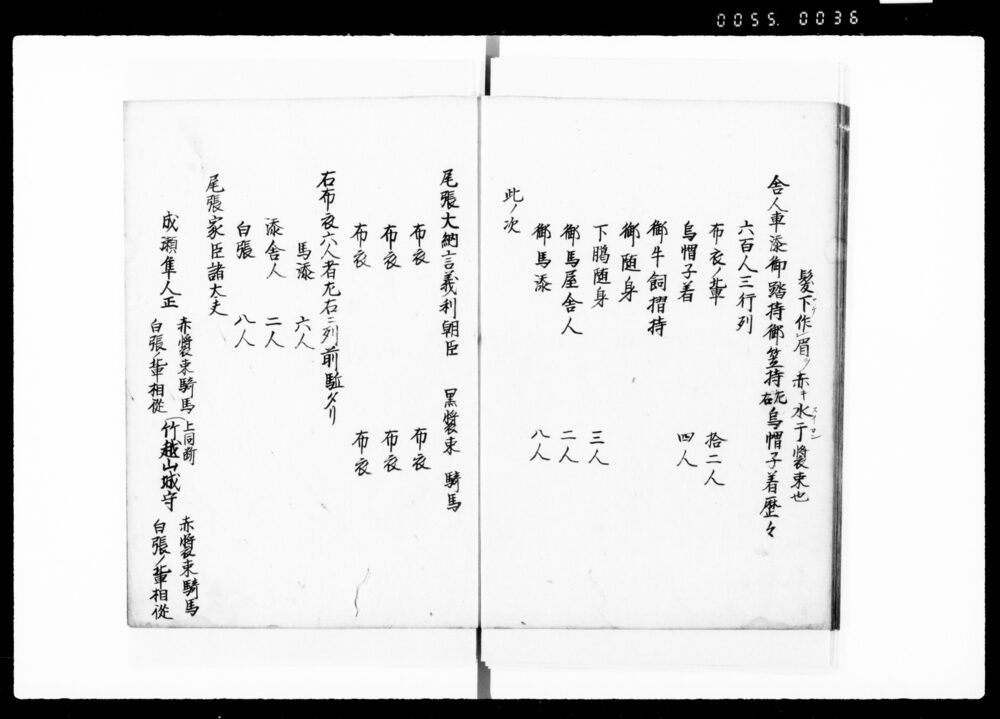 0055. 0036
髪下作眉ツ赤キ水干裝束也
舎人車添御踏持御笠持左右烏帽子着歴々
六百人三行列
布衣ノ輩 拾二人
烏帽子着 四人
御牛飼摺持
御随身
下﨟随身 三人
御馬屋舎人 二人
御馬添 八人
此ノ次
尾張大納言義利朝臣 黒裝束 騎馬
布衣 布衣
布衣 布衣
布衣 布衣
右布衣六人者左右ニ列前駈タリ
馬添 六人
添舎人 二人
白張 八人
尾張家臣諸大夫
成瀬隼人正 赤裝束騎馬 白張ノ輩相從
上同断
竹越山城守 赤裝束騎馬 白張ノ輩相從